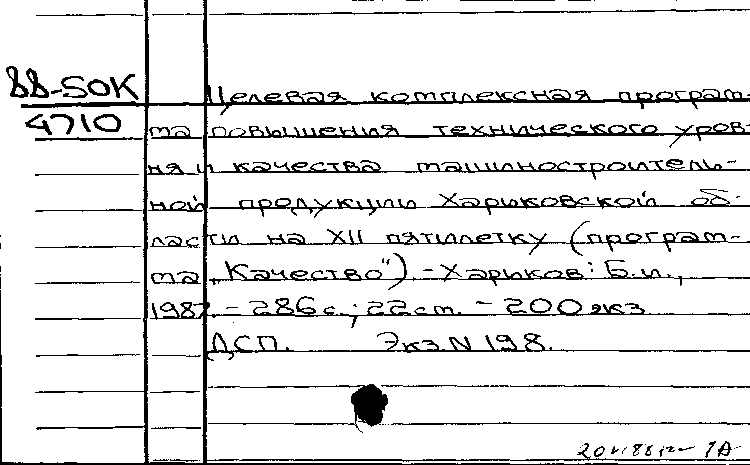 88-50К
4710
Целевая комплексная програм-
ма повышения технического уров-
ня и качества машиностроитель-
ной продукции Харьковской об-
ласти на XII пятилетку (програм-
ма „Качество"). - Харьков: Б.и.,
1987. - 286 с.; 22 см. - 200 экз
ДСП. Экз N 198.